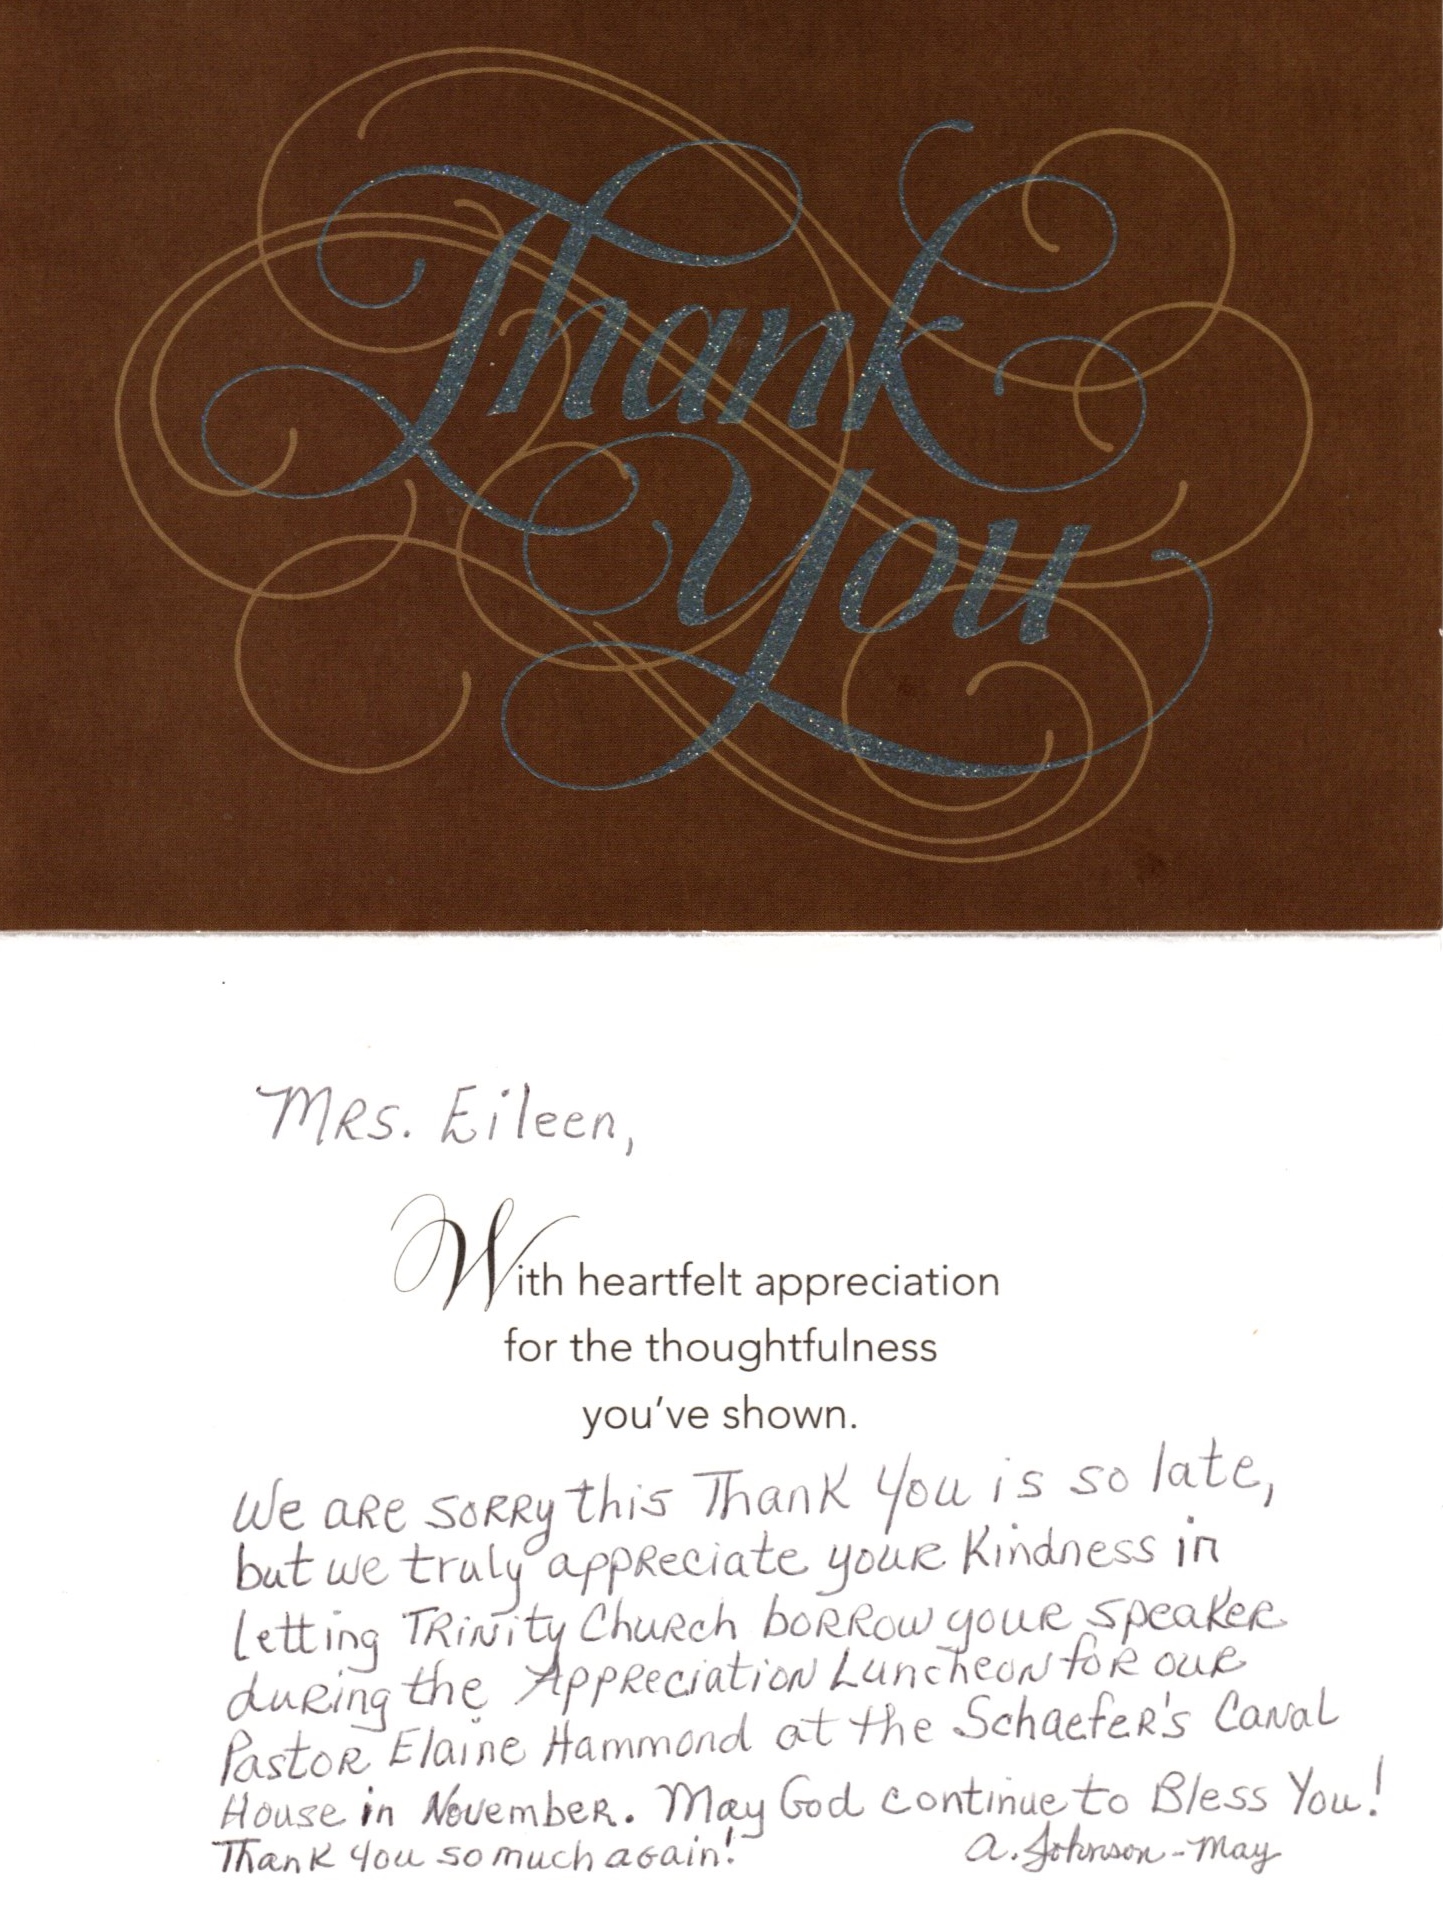 Thank
You
Mrs. Eileen,
With heartfelt appreciation
for the thoughtfulness
you've shown.
We are sorry this Thank You is so late,
but we truly appreciate your Kindness in
letting Trinity Church borrow your speaker
during the Appreciation Luncheon for our
Pastor Elaine Hammond at the Schaefer's Canal
House in November. May God continue to Bless You!
Thank you so much again!
A. Johnson-May